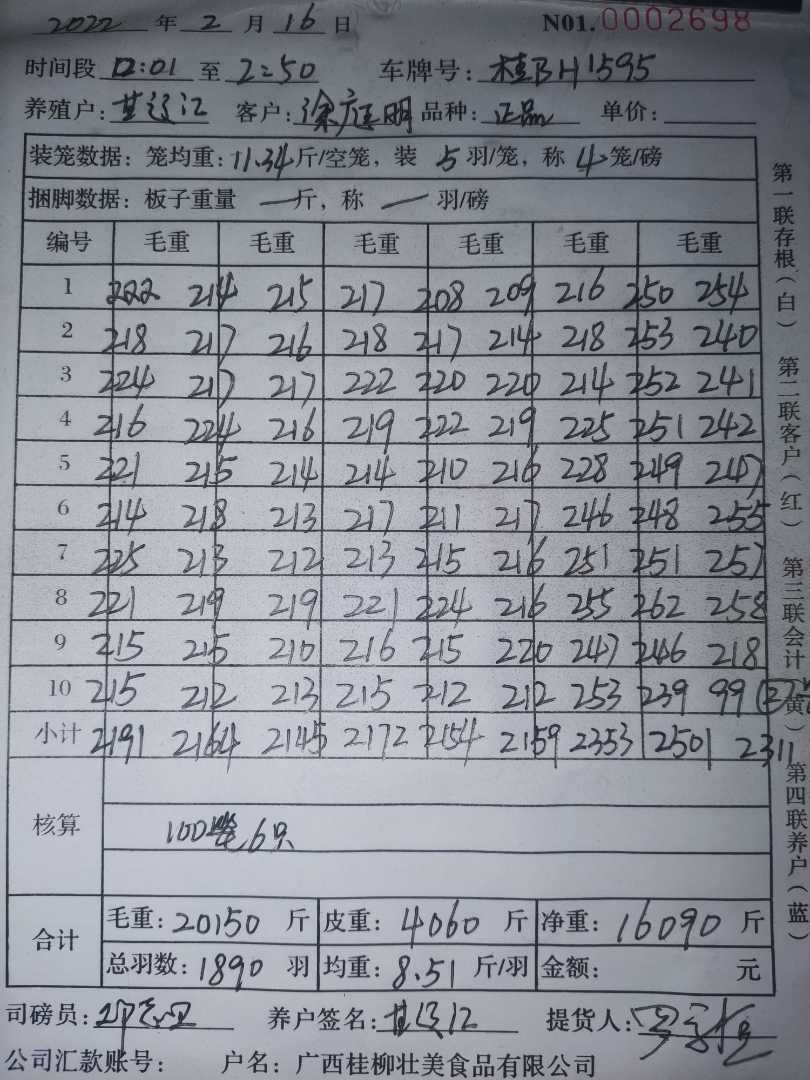 2022 年 2 月 16 日 N01.0002698
时间段 12:01 至 2:50 车牌号: 桂BH1595
养殖户: 客户: 徐庭明 品种: 正品 单价:
装笼数据: 笼均重: 11.34斤/空笼, 装 5 羽/笼, 称 4笼/磅
捆脚数据: 板子重量 一斤, 称 一 羽/磅
编号 毛重 毛重 毛重 毛重 毛重 毛重
1 222 214 215 217 208 209 216 250 254
2 218 217 216 218 217 214 218 253 240
3 224 217 217 222 220 220 214 252 241
4 216 224 216 219 222 219 225 251 242
5 221 215 214 214 210 216 228 249 247
6 214 218 213 217 211 217 246 248 255
7 225 213 212 213 215 216 251 251 257
8 221 219 219 221 224 216 255 262 258
9 215 215 210 216 215 220 247 246 218
10 215 212 213 215 212 212 253 239 99
小计 2191 2164 2145 2172 2154 2159 2353 2501 2311
核算
100笼6只
合计
毛重: 20150 斤 皮重: 4060 斤 净重: 16090 斤
总羽数: 1890 羽 均重: 8.51 斤/羽 金额: 元
司磅员: 养户签名: 提货人:
公司汇款账号: 户名: 广西桂柳壮美食品有限公司
第一联存根(白) 第二联客户(红) 第三联会计(黄) 第四联养户(蓝)